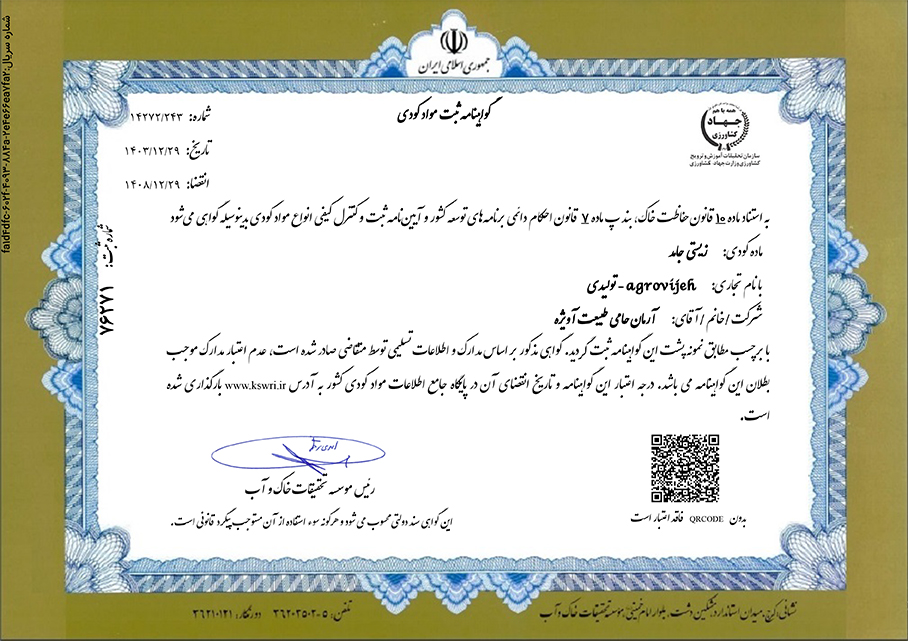 جمهوری اسلامی ایران
همه با هم
جهاد
کشاورزی
سازمان تحقیقات آموزش و ترویج
کشاورزی وزارت جهاد کشاورزی
گواینامه ثبت مواد کودی
شماره: ۱۴۲۷۲/۲۴۳
تاریخ: ۱۴۰۳/۱۲/۲۹
انقضا: ۱۴۰۸/۱۲/۲۹
به استناد ماده ۱۰ قانون حفاظت خاک، بند پ ماده ۷ قانون احکام دائمی برنامه های توسعه کشور و آیین نامه ثبت و کنترل کیفی انواع مواد کودی بدینوسیله گواهی می شود
ماده کودی: زیستی جامد
با نام تجاری: agrovijeh - تولیدی
شرکت / خانم / آقای: آرمان حامی طبیعت آویژه
با برچسب مطابق نمونه پشت این گواینامه ثبت گردید. گواهی مذکور بر اساس مدارک و اطلاعات تسلیمی توسط متقاضی صادر شده است، عدم اعتبار مدارک موجب
بطلان این گواینامه می باشد. درجه اعتبار این گواینامه و تاریخ انقضای آن در پایگاه جامع اطلاعات مواد کودی کشور به آدرس www.kswri.ir بارگذاری شده
است.
شماره ثبت: ۷۶۲۷۱
رئیس موسسه تحقیقات خاک و آب
این گواهی سند دولتی محسوب می شود و هرگونه سوء استفاده از آن مستوجب پیگرد قانونی است.
بدون QRCODE فاقد اعتبار است
نشانی: کرج، میدان استاندارد، مشکین دشت، بلوار امام خمینی، موسسه تحقیقات خاک و آب
تلفن: ۵-۳۶۲۰۳۵۰۲ دورنگار: ۳۶۲۱۰۱۲۱